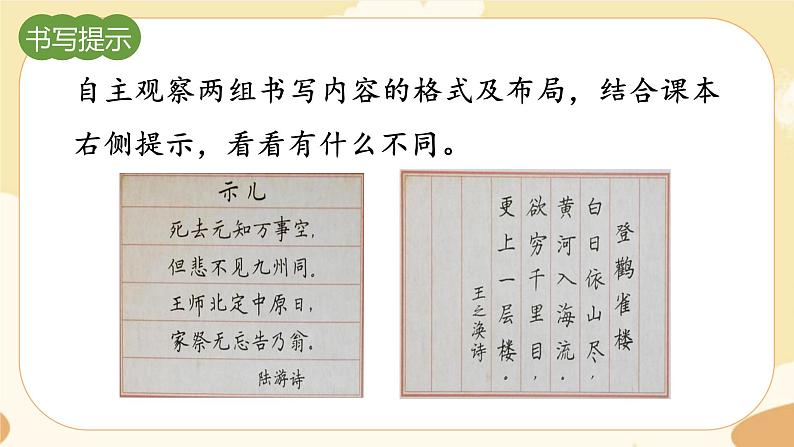 书写提示
自主观察两组书写内容的格式及布局，结合课本
右侧提示，看看有什么不同。
示儿
死去元知万事空，
但悲不见九州同。
王师北定中原日，
家祭无忘告乃翁。
陆游诗
登鹳雀楼
白日依山尽，
黄河入海流。
欲穷千里目，
更上一层楼。
王之涣诗